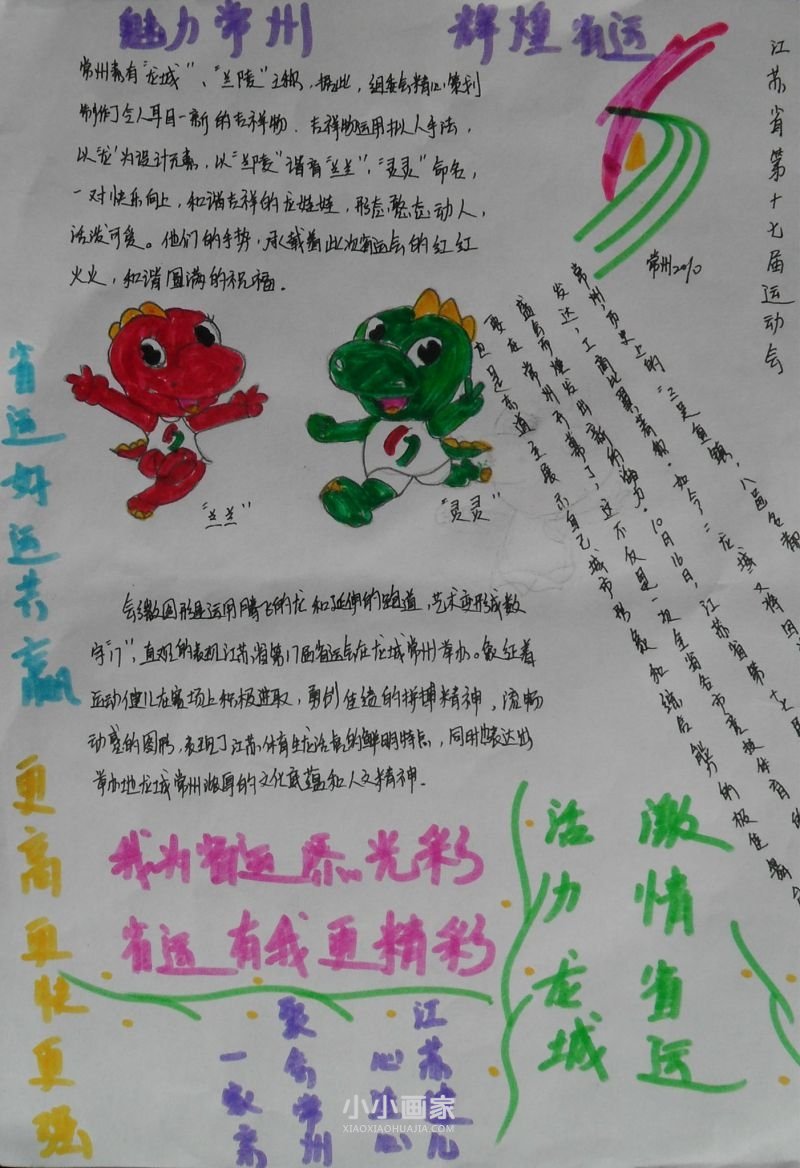 魅力常州 辉煌省运
江苏省第十七届运动会
常州2010
常州素有“龙城”、“兰陵”之称，据此，组委会精心策划
制作了令人耳目一新的吉祥物．吉祥物运用拟人手法，
以“龙”为设计元素，以“兰陵”谐音“兰兰”，“灵灵”命名，
一对快乐向上，和谐吉祥的龙娃娃，形态憨态动人，
活泼可爱。他们的手势，承载着此次省运会的红红
火火，和谐圆满的祝福。
“兰兰”
“灵灵”
常州历史上的“三吴重镇，八邑名都
发达，工商比翼
在常州开幕了，这不仅是一次全省各市竞技体育的
也是东道主展示自己城市形象和综合能力的极佳
会徽图形是运用腾飞的龙和延伸的跑道，艺术变形成数
字“17”，直观的表现江苏省第17届省运会在龙城常州举办。象征着
运动健儿在赛场上积极进取，勇创佳绩的拼搏精神，流畅
动感的图形，表现了江苏体育生龙活虎的鲜明特点，同时也表达出
举办地龙城常州浓厚的文化底蕴和人文精神．
省运好运共赢
更高更快更强
我为省运添光彩
省运有我更精彩
激情省运
活力龙城
江苏健儿
心连心
聚会常州
一家亲
小小画家
XIAOXIAOHUAJIA.COM